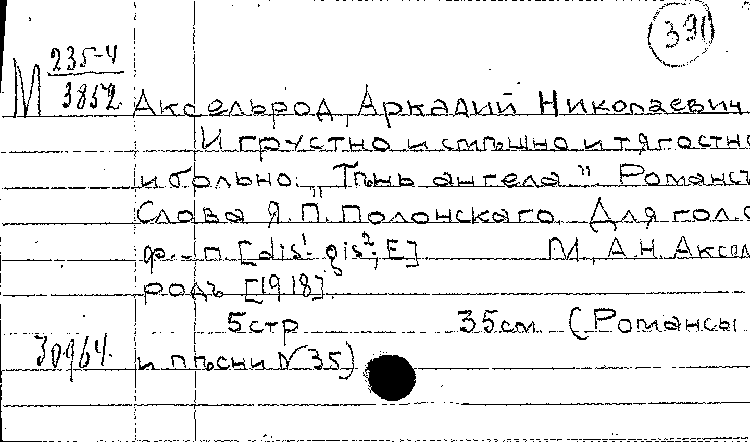 391
М 235-4
3852
Аксельрод, Аркадий Николаевич
И грустно и смѣшно и тягостно
и больно. „Тѣнь ангела". Романсъ
Слова Я. П. Полонскаго. Для гол. с
ф.-п. [dis¹- gis²; E] М., А. Н. Аксел
родъ [1918].
5 стр 35 см (Романсы
30964. и пѣсни № 35)